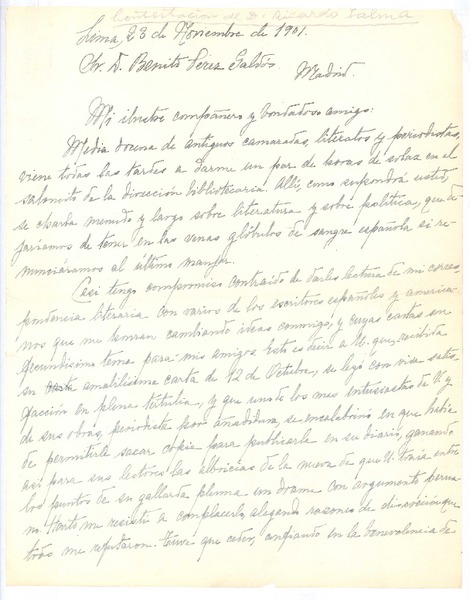 Contestación de D. Ricardo Palma
Lima, 23 de Noviembre de 1901.
Sr. D. Benito Pérez Galdós
Madrid.
Mi ilustre compañero y bondadoso amigo:
Media docena de antiguos camaradas, literatos y periodistas,
viene todas las tardes a darme un par de horas de solaz en el
saloncito de la dirección bibliotecaria. Allí, como supondrá usted,
se charla menudo y largo sobre literatura y sobre política, que de-
jaríamos de tener en las venas glóbulos de sangre española si re-
nunciáramos al último manjar.
Casi tengo compromiso contraído de darles lectura de mi corres-
pondencia literaria con varios de los escritores españoles y america-
nos que me honran cambiando ideas conmigo, y cuyas cartas son
fecundísimo tema para mis amigos. Esto es decir a V. que, recibida
su amabilísima carta de 12 de Octubre, se leyó con viva satis-
facción en plena tertulia, y que uno de los mas entusiastas de V. y
de sus obras, periodista por añadidura, se encalabrinó en que había
de permitirle sacar copia para publicarla en su diario, ganando
así para sus lectores las albricias de la nueva de que V. tenía entre
los puntos de su gallarda pluma un drama con argumento perua-
no. Harto me resistí a complacerlo, alegando razones de discreción que
todos me refutaron. Tuve que ceder, confiando en la benevolencia de